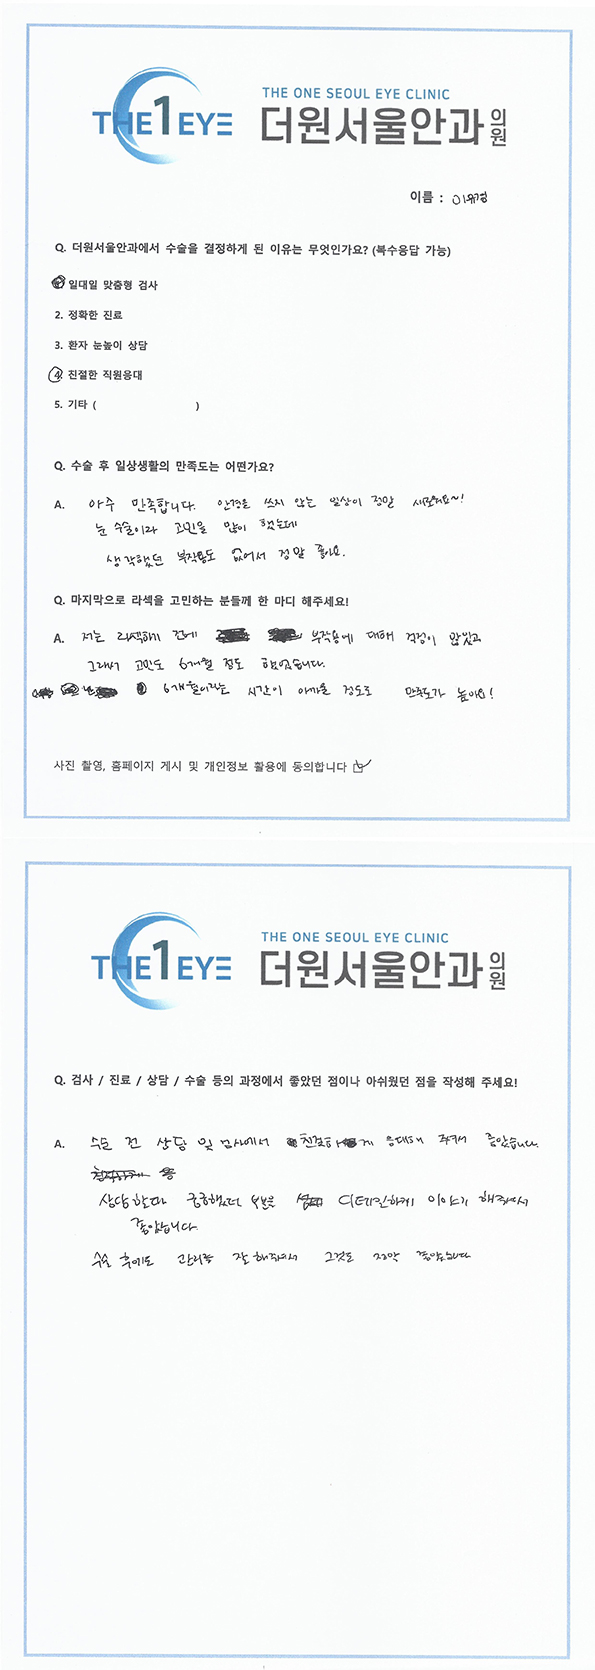 THE 1 EYE
THE ONE SEOUL EYE CLINIC
더원서울안과의원
이름 : 이유경
Q. 더원서울안과에서 수술을 결정하게 된 이유는 무엇인가요? (복수응답 가능)
일대일 맞춤형 검사
2. 정확한 진료
3. 환자 눈높이 상담
4. 친절한 직원응대
5. 기타 ( )
Q. 수술 후 일상생활의 만족도는 어떤가요?
A. 아주 만족합니다. 안경을 쓰지 않는 일상이 정말 새로워요~!
눈 수술이라 고민을 많이 했는데
생각했던 부작용도 없어서 정말 좋아요.
Q. 마지막으로 라섹을 고민하는 분들께 한 마디 해주세요!
A. 저는 라섹하기 전에 부작용에 대해 걱정이 많았고
그래서 고민도 6개월 정도 했었습니다.
6개월이라는 시간이 아까울 정도로 만족도가 높아요!
사진 촬영, 홈페이지 게시 및 개인정보 활용에 동의합니다
THE 1 EYE
THE ONE SEOUL EYE CLINIC
더원서울안과의원
Q. 검사 / 진료 / 상담 / 수술 등의 과정에서 좋았던 점이나 아쉬웠던 점을 작성해 주세요!
A. 수술 전 상담 및 검사에서 친절하게 응대해 주셔서 좋았습니다.
상담할때 궁금했던 부분을 디테일하게 이야기 해주셔서
좋았습니다.
수술 후에도 관리를 잘 해주셔서 그것도 정말 좋았습니다